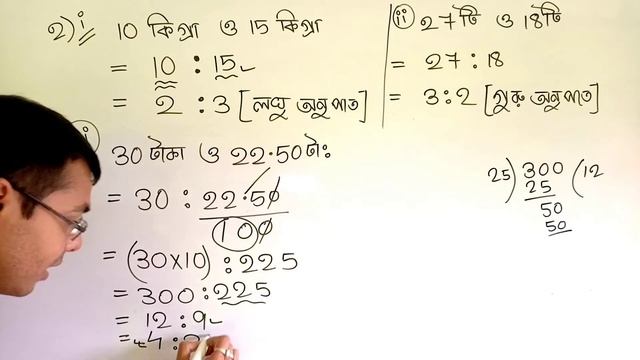 2) i 10 কিগ্রা ও 15 কিগ্রা
= 10 : 15
= 2 : 3 [লঘু অনুপাত]
ii 27টি ও 18টি
= 27 : 18
= 3 : 2 [গুরু অনুপাত]
30 টাকা ও 22.50 টাঃ
= 30 : 22.50
100
= (30×10) : 225
= 300 : 225
= 12 : 9
= 4 :
25) 300 (12
25
50
50